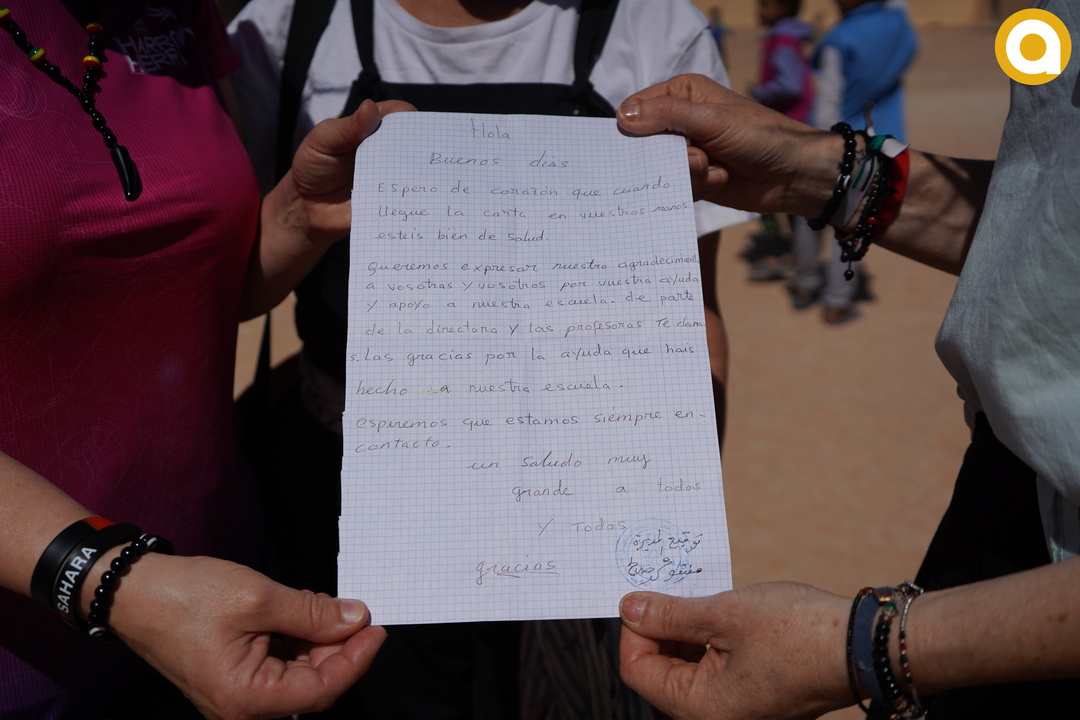 Hola
Buenos dias
Espero de corazón que cuando
llegue la carta en vuestros manos
esteis bien de salud.
Queremos expresar nuestro agradecimient
a vosotras y vosotros por vuestra ayuda
y apoyo a nuestra escuela. de parte
de la directora y las profesoras Te dam
s. Las gracias por la ayuda que hais
hecho a nuestra escuela.
esperemos que estamos siempre en-
contacto.
un saludo muy
grande a todas
y Todos
gracias
توقيع المديرة
SAHARA